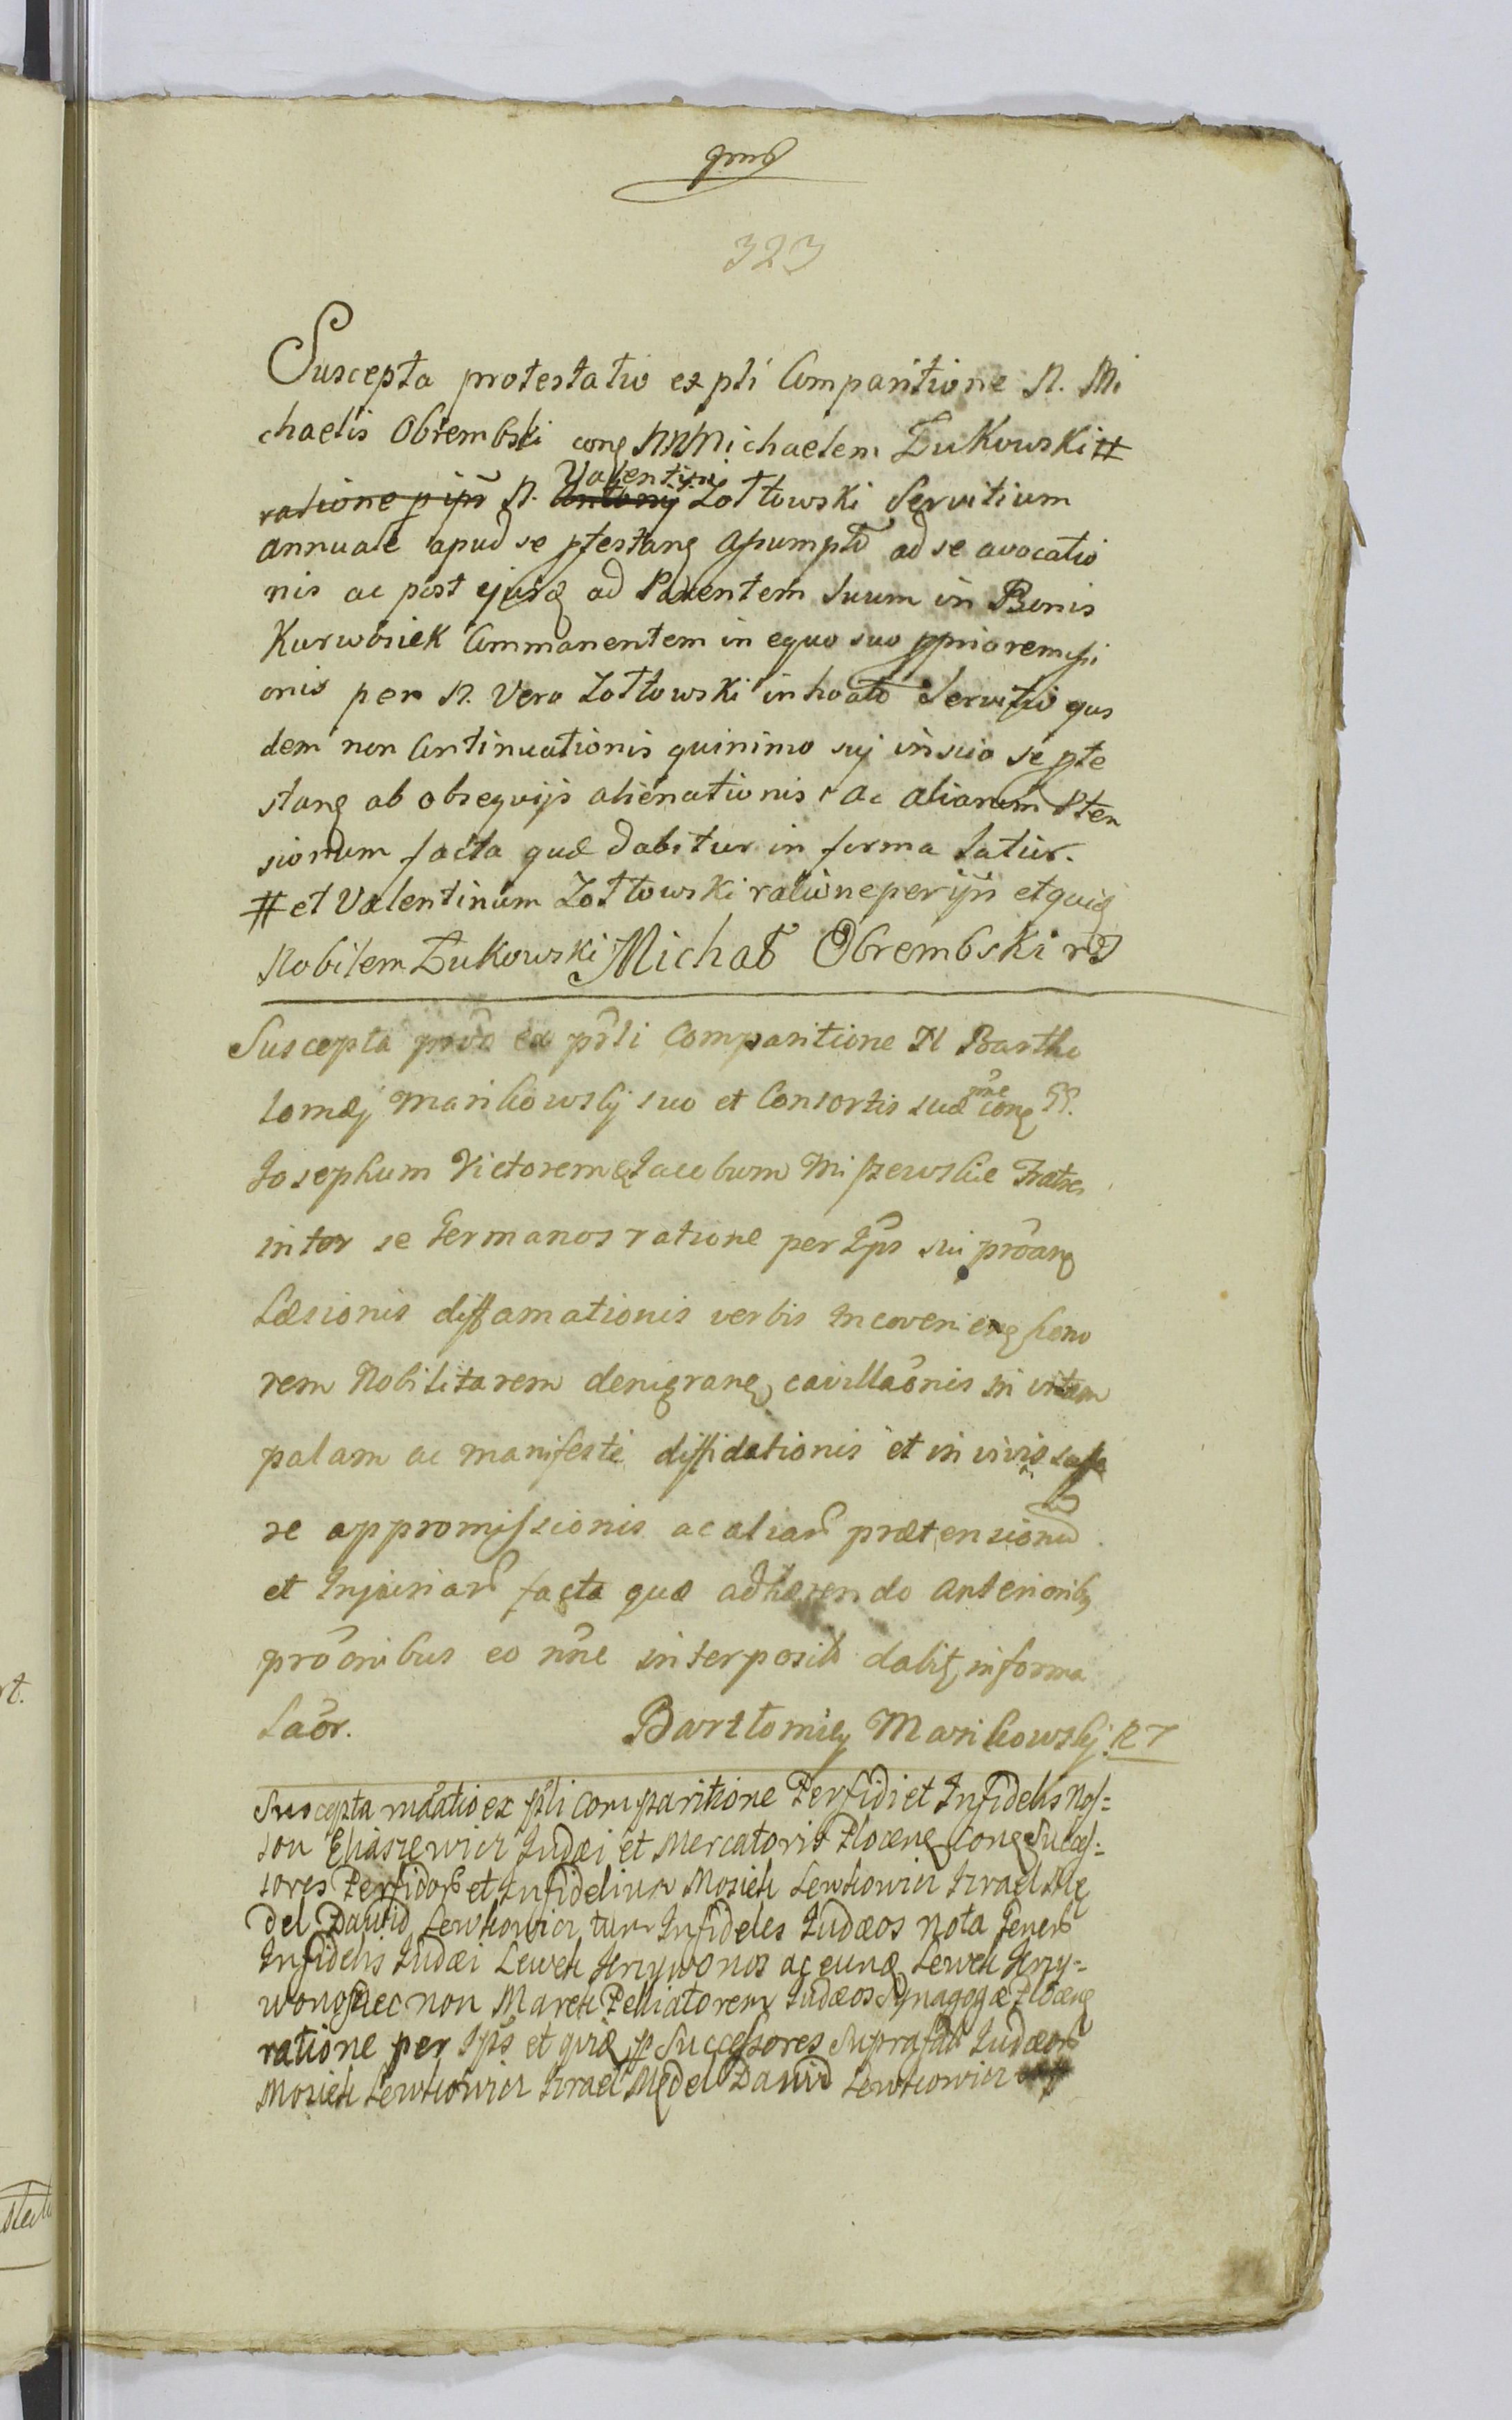 323
Suscepta protestatio ex pti Comparitione N. Mi
chaelis Obrembski cong NNMichaelem Zukowski #
ratione p ips N. Antonij Valentini Zołtowski Servitium
annuale apud se ptestang assumpto ad se avocatio
nis ac post ejusq ad Parentem suum in Bonis
Kurwosiek Commanentem in equo suo pprio remissi
onis per N. Vero Zołtowski inhoato Servitio ejus
dem non Continuationis quinimo suj inscio se pte
stang ab obsequijs alienationis ac aliarum Pten
sionum facta quæ dabitur in forma latior.
# et Valentinum Zołtowski ratione per ijps et quidq
Nobilem Zukowski Michał Obrembski
Suscepta ex prli Comparitione N Bartho
lomæj Marikowskj suo et Consortis suæ nne cong GG.
Josephum Victorem & Jacobum Miszewskie Fratres
inter se Germanos ratione per Ips sui proang
Læsionis diffamationis verbis Inconvenieng hono
rem Nobilitarem denigrang cavillaonis in vitam
palam ac manifeste diffidationis et in vivis
re appromissionis ac aliar prætensionu
et Injuriar facta quæ adhærendo anteriorib
proonibus eo nne interposit dabit in forma
laor. Bartłomiey Marikowskj R T
Suscepta ex pli comparitione Perfidi et Infidelis Nos=
son Eliaszewicz Judæi et Mercatoris Ploceng cong Succes=
sores Perfidor et Infidelium Mosiek Lewkowicz Izrael Mę
del Dawid Lewkowicz tum Infideles Judæos nota Gener
Infidelis Judæi Lewek ac eunq Lewek
nec non Marek Pelliatorem Judæos Synagogæ Ploceng
ratione per Ips et quiq p Successores Suprafat Judæor
Mosiek Lewkowicz Izrael Mędel Dawid Lewkowicz